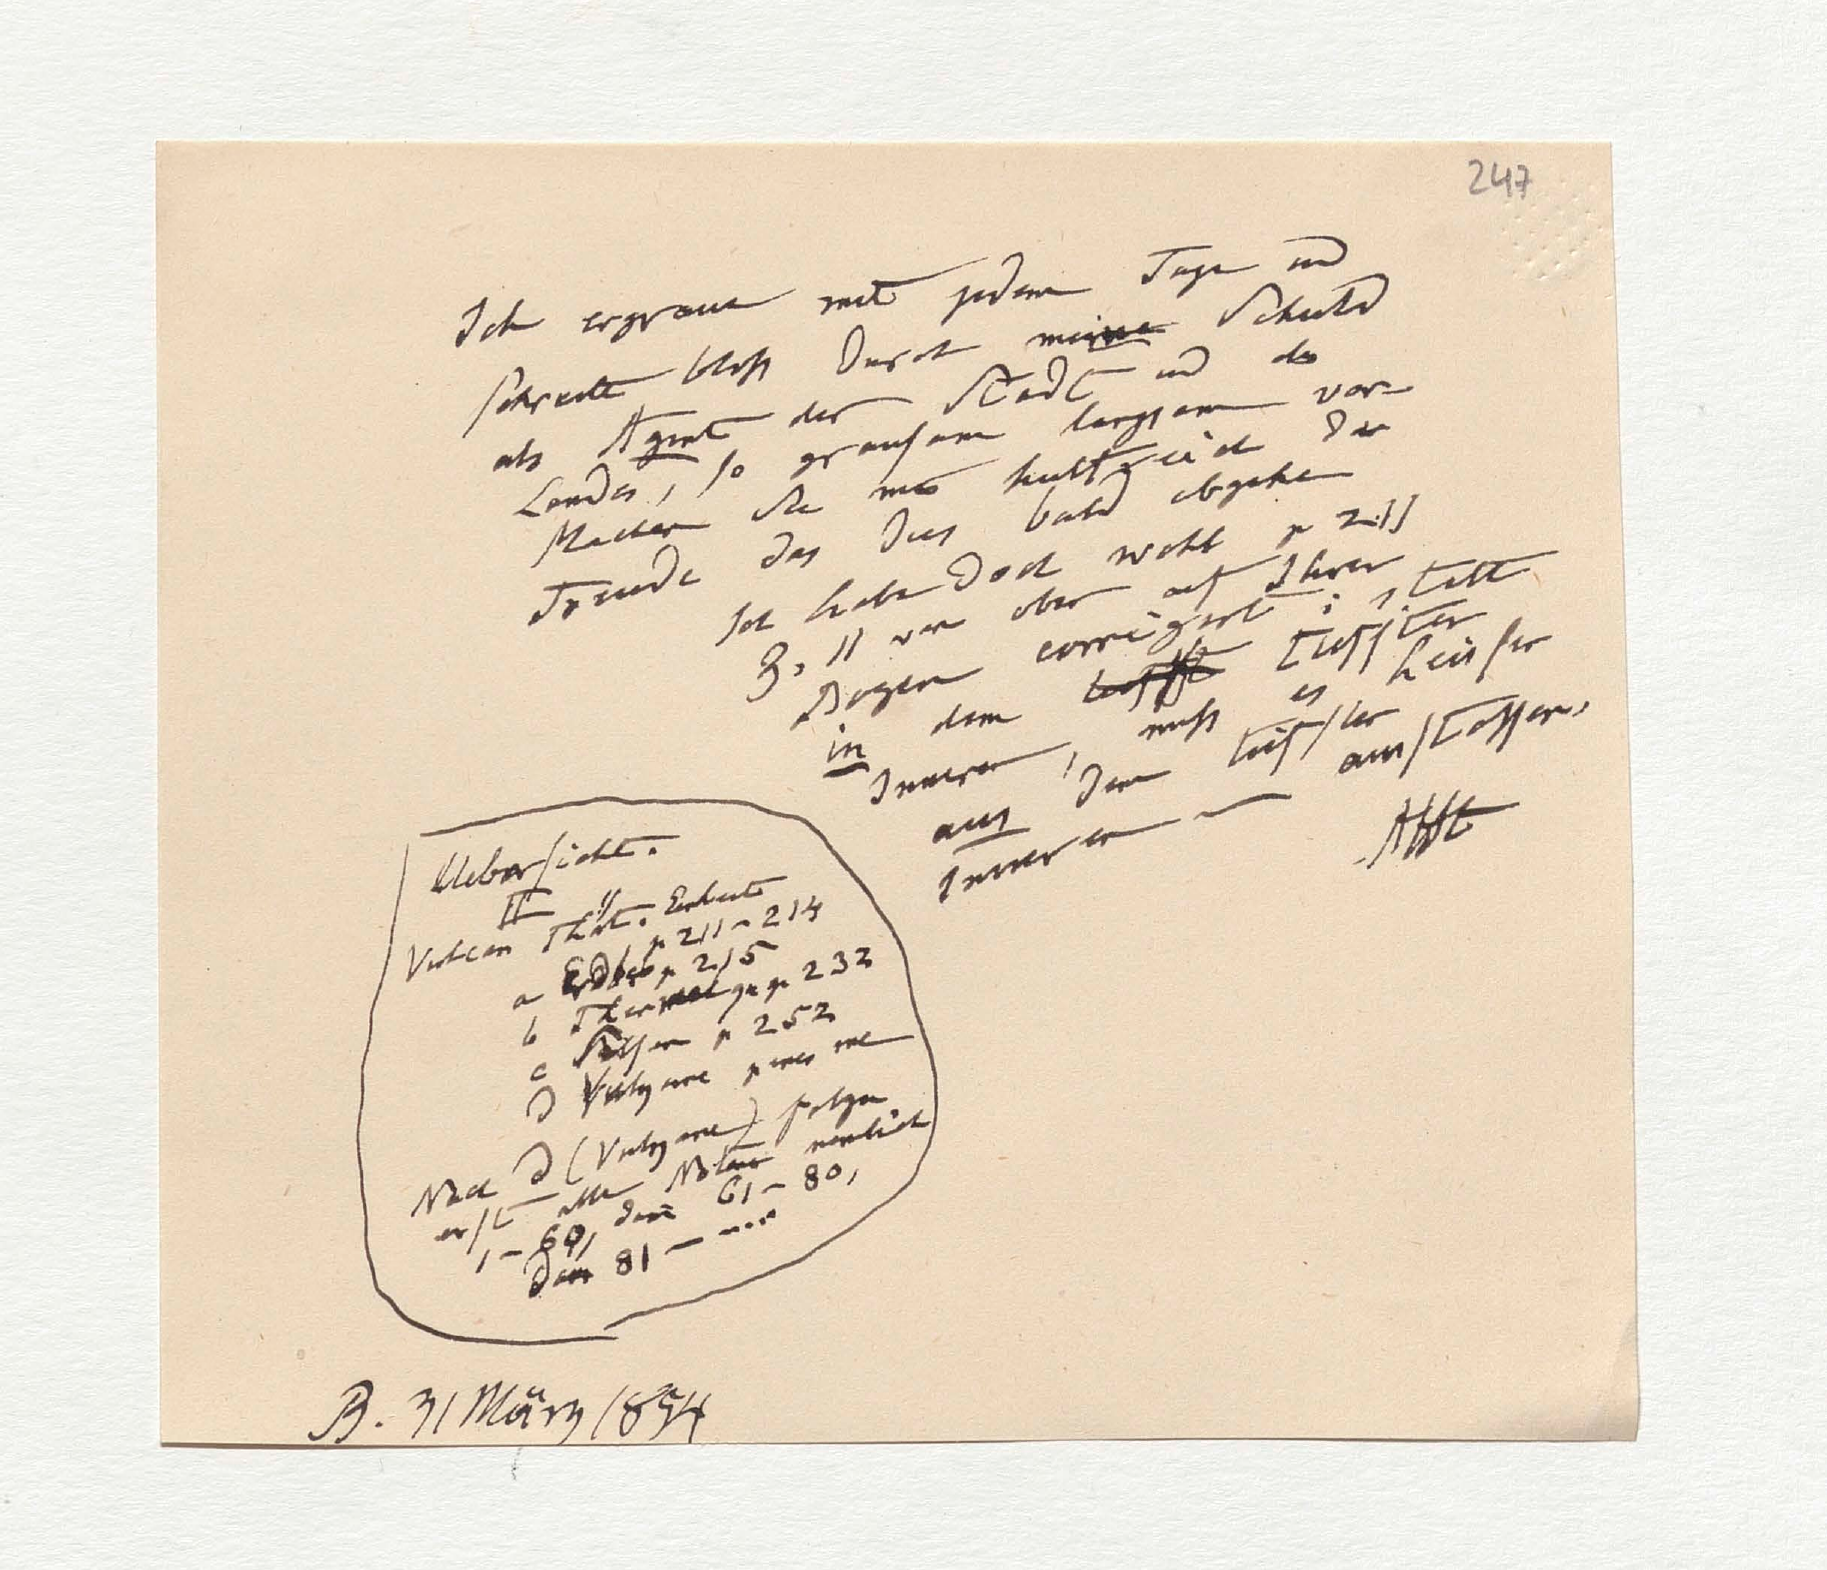 247
Ich ergraue mit jedem Tage und
schreite bloß durch meine Schuld
als Agent der Stadt und des
Landes, so grausam langsam vor-
Machen Sie mir hülfreich die
Freude das dies bald abgehe
Ich habe doch wohl p 211
Z. 11 von oben auf Ihrem
Bogen corrigirt: statt
in dem tiefsten
Inneren, muß es heißen
aus dem tiefsten
Inneren ausstoßen.
AHt
Uebersicht.
II
Vulcan Thät. Erdbeb
p 211–214
a Erdbeb p 215
b Thermalqu p 232
c Salsen p 252
d Vulkane
Nach d (Vulkane) folgen
erst alle Noten nemlich
1–60, dann 61–80,
dann 81 – ....
B. 31 März 1854